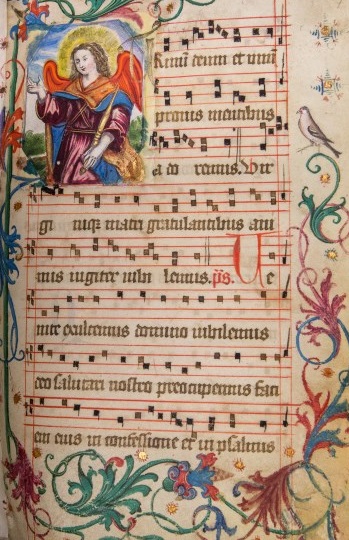 rinū deum et unū
pronis mentibus
ad o remus. Vir
gi niq; matri gratulantibus ani
mis iugiter iubi lemus. ps. Ve
nite exultemus domino iubilemus
deo salutari nostro preocupemus faci
em eius in confessione et in psalmis